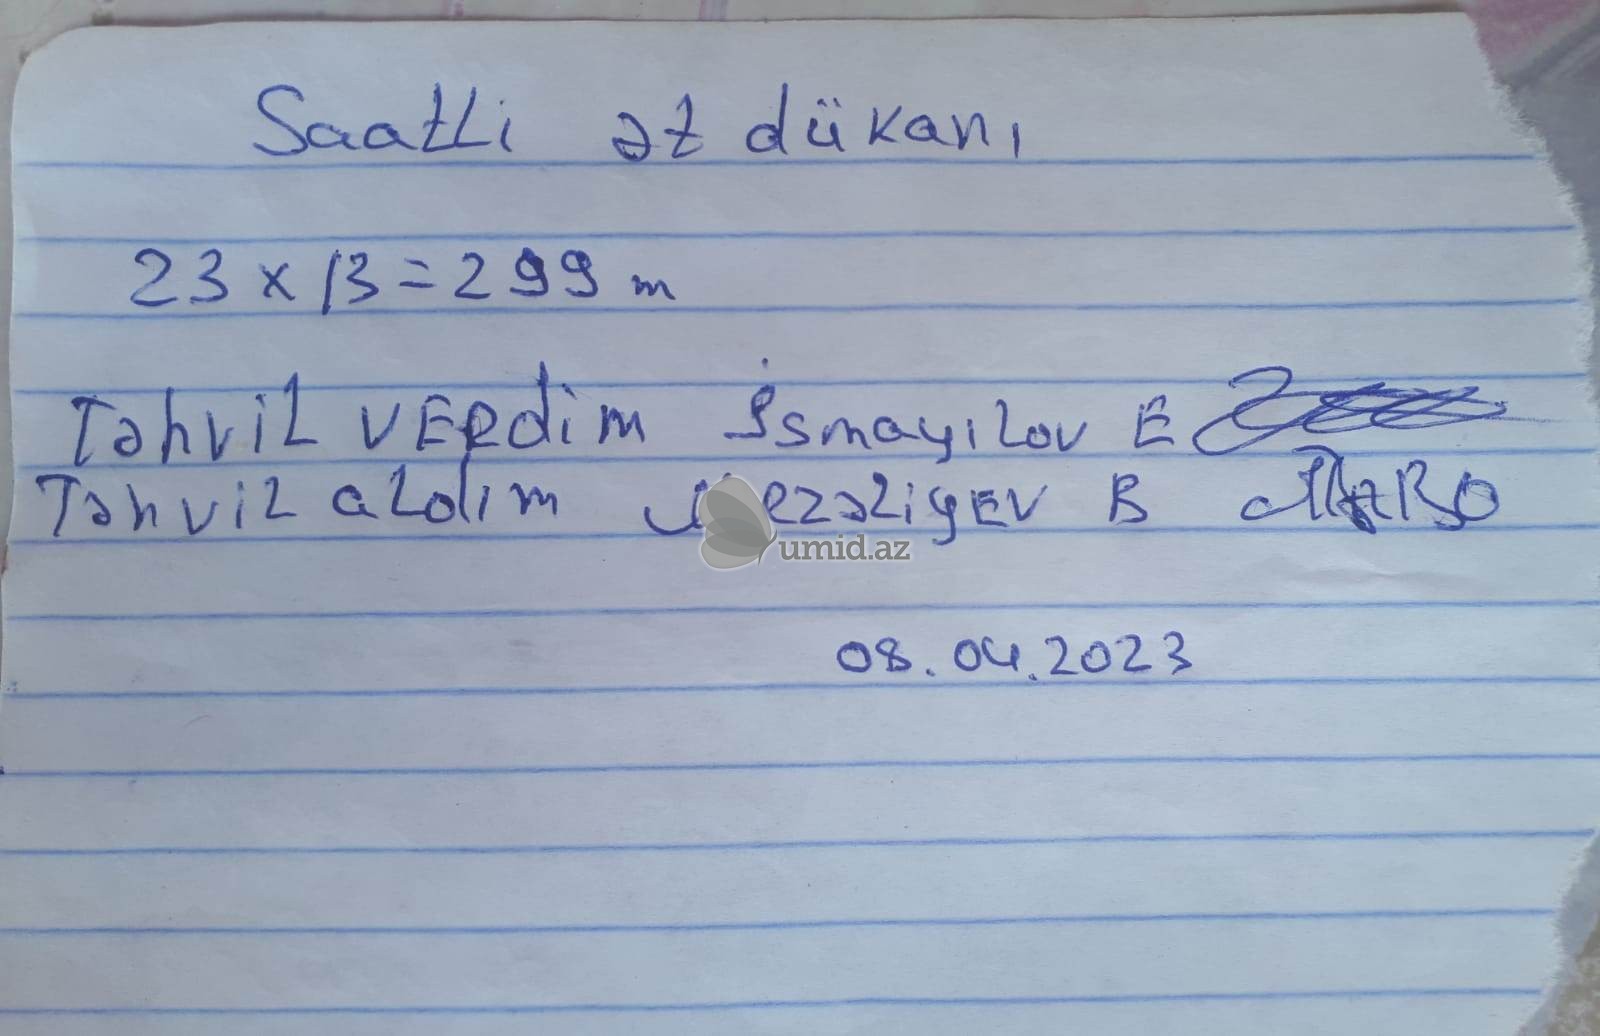 Saatli ət dükanı
23 x 13 = 299 m
Təhvil verdim İsmayılov E
Təhvil aldım B
umid.az
08.04.2023